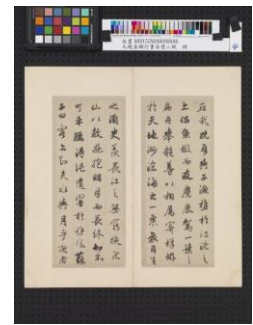 在哉況吾與子漁樵於江渚之
上侶魚鰕而友麋鹿駕一葉之
扁舟舉匏尊以相屬寄蜉蝣
於天地渺滄海之一粟哀吾生
之須臾羨長江之無窮挾飛
仙以遨遊抱明月而長終知不
可乎驟得託遺響於悲風蘇
子曰客亦知夫水與月乎逝者